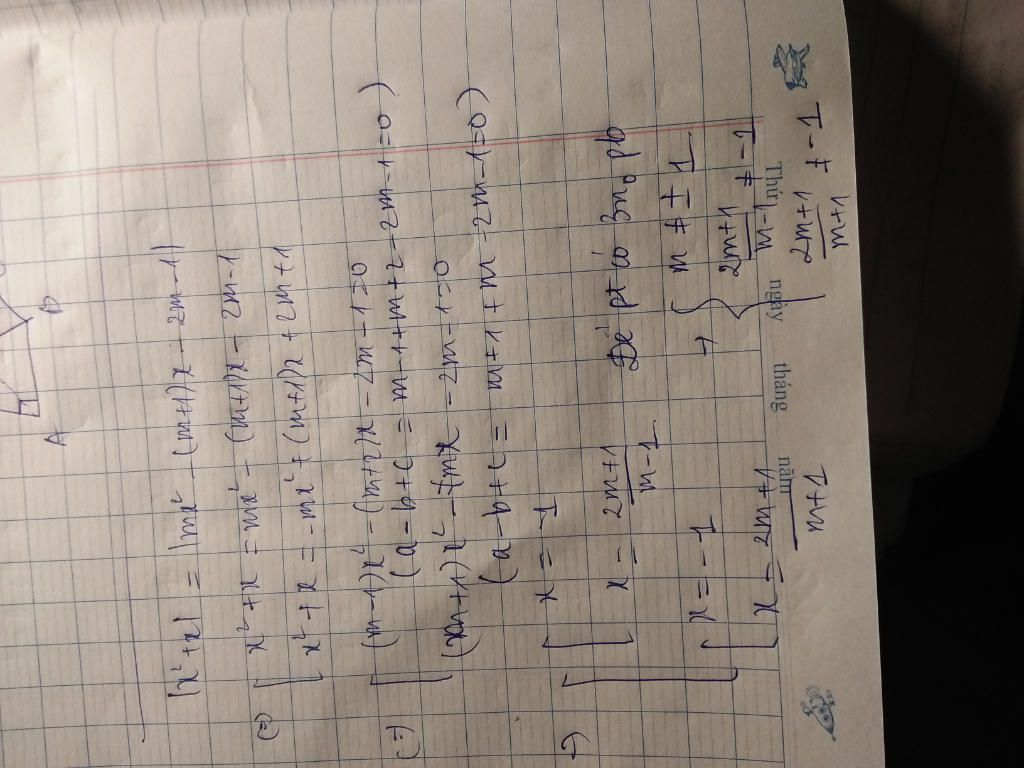 A B
|x²+x| = |mx² - (m+1)x - 2m - 1|
(=) [ x²+x = mx² - (m+1)x - 2m-1
x²+x = -mx² + (m+1)x + 2m+1
(=) [ (m-1)x² - (m+2)x - 2m - 1=0
(a-b+c = m-1+m+2-2m-1=0)
(m+1)x² - mx - 2m-1=0
(a-b+c = m+1+m-2m-1=0)
→) [ [ x = -1
x = \frac{2m+1}{m-1}
Để pt có 3n₀ pb
[ x = -1
→ { m ≠ ± 1
x = \frac{2m+1}{m+1}
\frac{2m+1}{m-1} ≠ -1
\frac{2m+1}{m+1} ≠ -1
Thứ ngày tháng năm